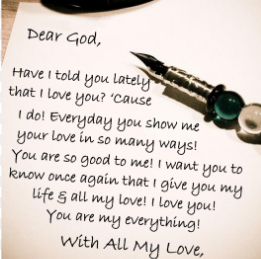 Dear God,
Have I told you lately
that I love you? 'Cause
I do! Everyday you show me
your love in so many ways!
You are so good to me! I want you to
know once again that I give you my
life & all my love! I love you!
You are my everything!
With All My Love,